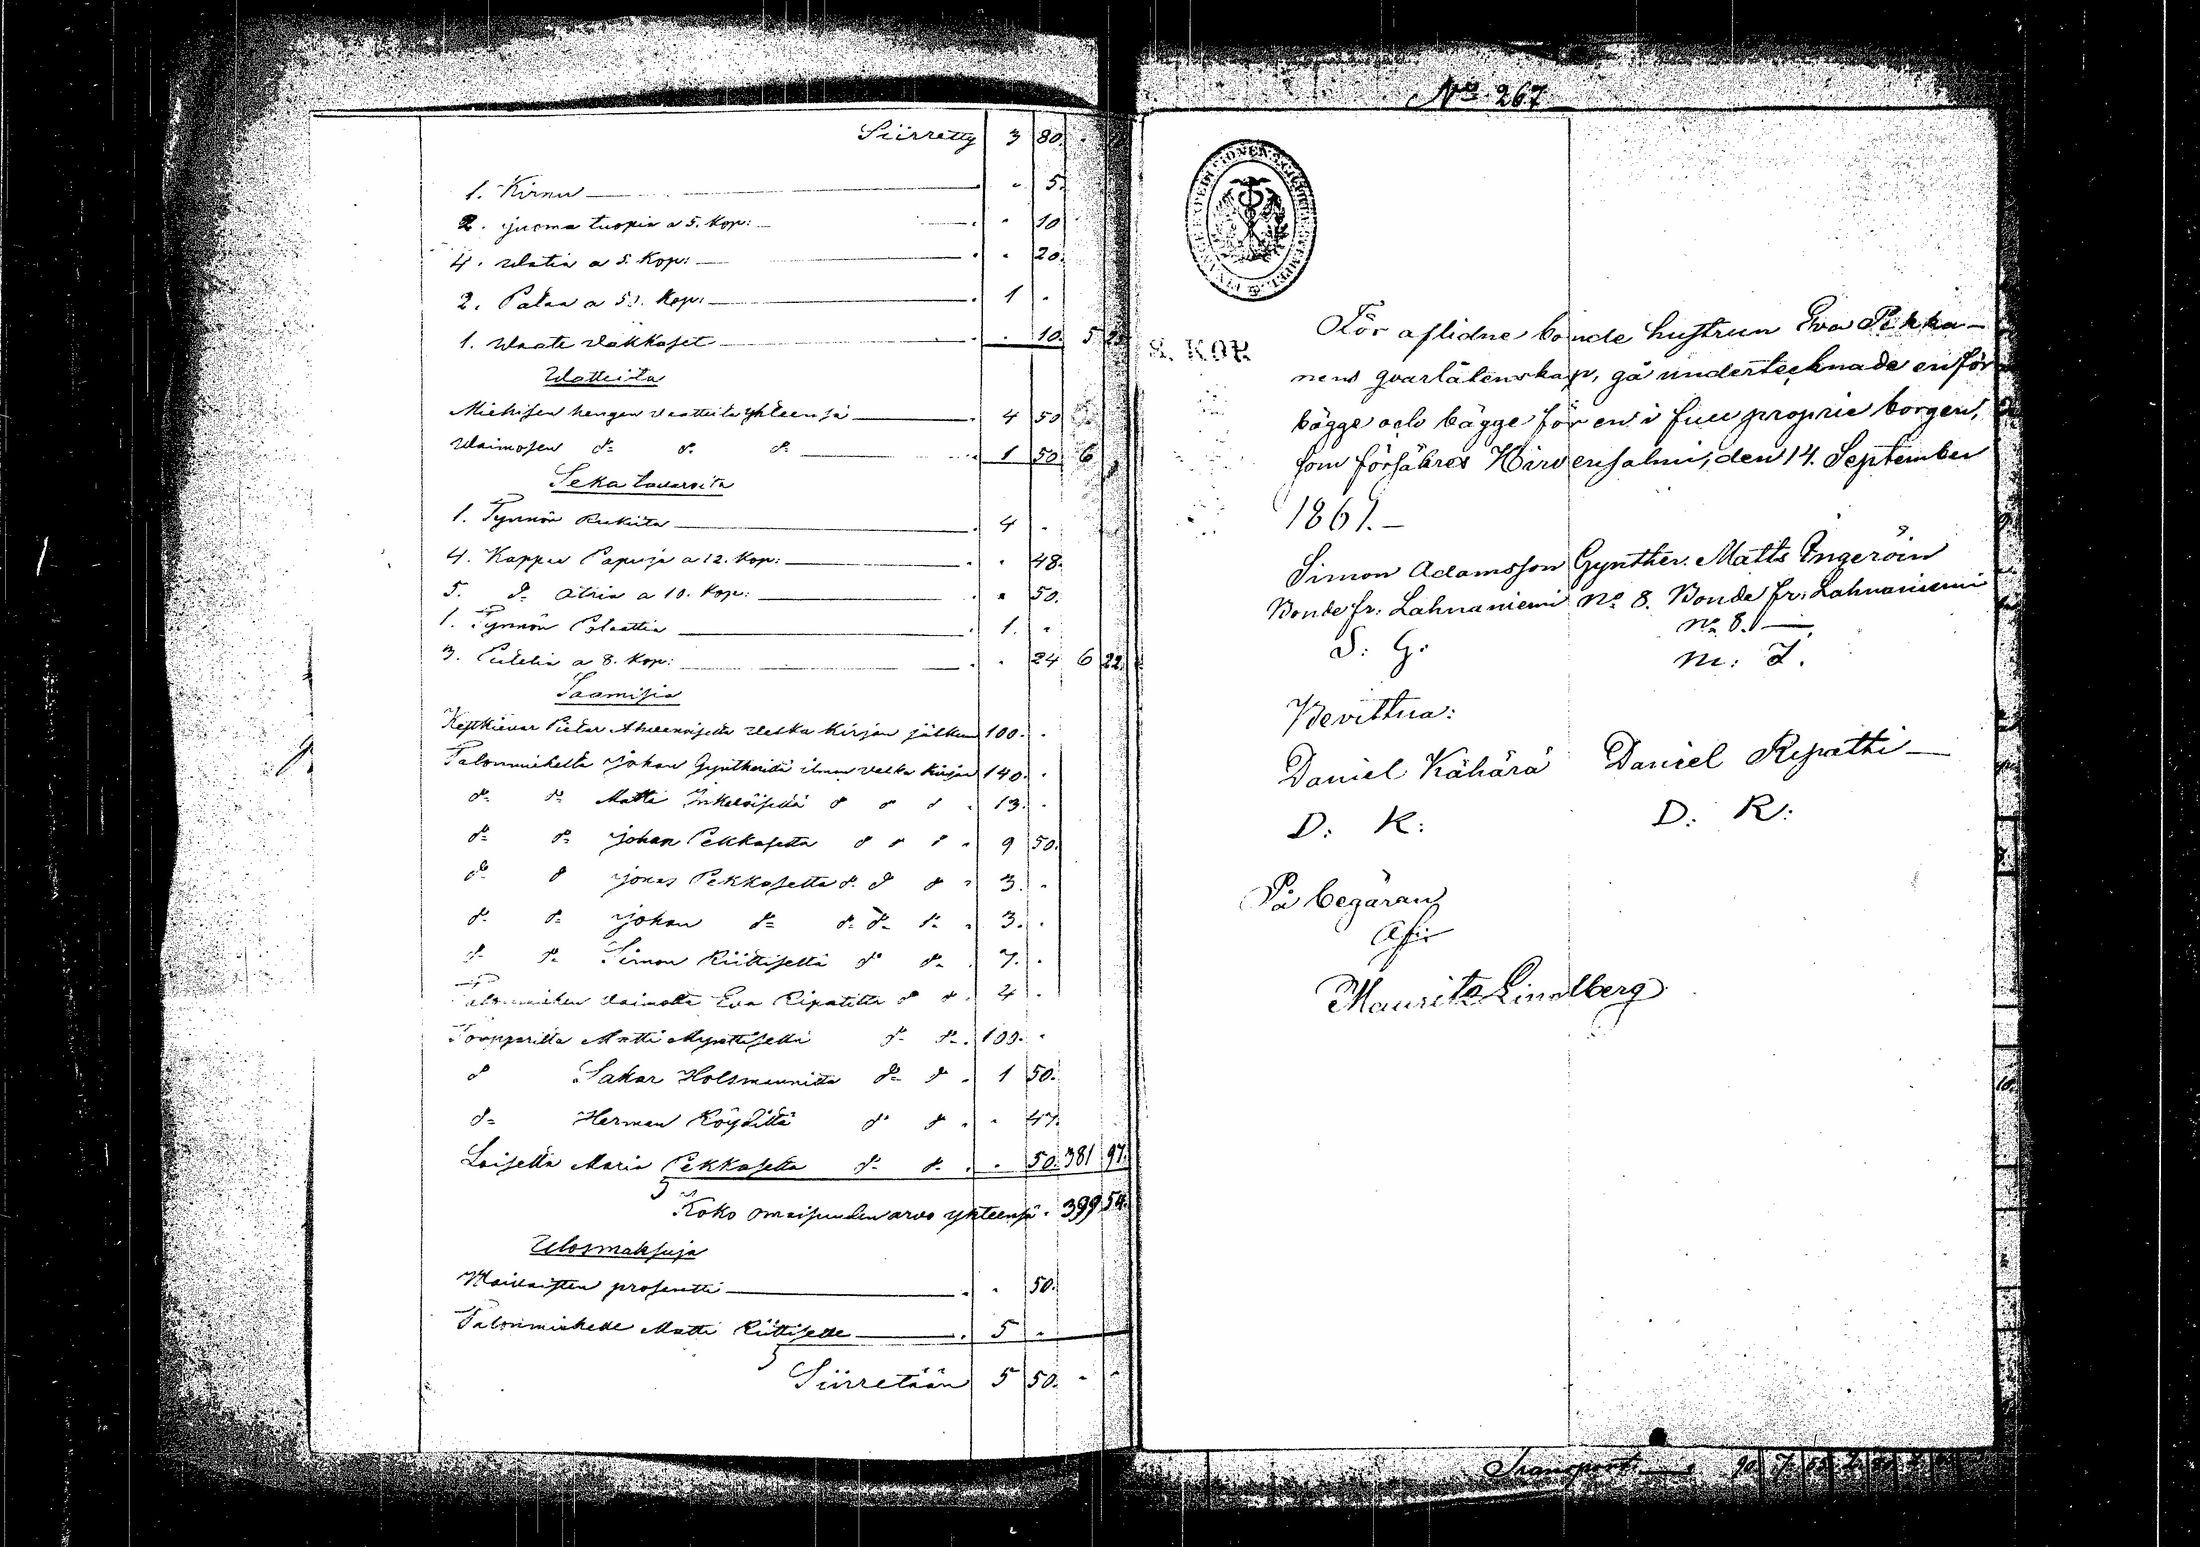 Siirretty 3 80. - -
1. Kirnu - 5.
2. juoma tuopia a 5. Kop: - 10
4. Watia a 5. Kop: - 20.
2. Pataa a 50. Kop: 1 -
1. Waate Wakkaset - 10. 5 25
Waatteita
Miehisen hengen vaatteita yhteensä 4 50
Waimosen d:o d:o d:o 1 50 6
Seka tavaroita
1. Tynnöri Rukiita 4 -
4. Kappa Papuja a 12. Kop: - 48.
5. d:o Ohria a 10. Kop: - 50.
1. Tynnöri 1. -
3. Putelia a 8. Kop: - 24 6 22.
Saamisia
Kestkievar Pietar Ahvenaiselta velka kirjan jälkeen 100. -
Talonmieheltä Johan Gyntheriltä ilman velka kirjan 140. -
d:o d:o Matti Inkeröiseltä d:o d:o d:o 13. -
d:o d:o Johan Pekkaselta d:o d:o d:o 9 50.
d:o d:o Jonas Pekkaselta d:o d:o d:o 3. -
d:o d:o Johan d:o d:o d:o d:o 3. -
d:o d:o Simon Riittiseltä d:o d:o 7. -
Talonmiehen vaimolta Eva Ripatilta d:o d:o 4 -
Torpparilta Matti d:o d:o 100. -
d:o Sakar Holsmannilta d:o d:o 1 50.
d:o Herman Köyhiltä d:o d:o - 47.
Loiselta Maria Pekkaselta d:o d:o - 50. 381 97.
Koko omaisuuden arvo yhteensä 399 54.
Ulosmaksuja
Waivaisten prosentti - 50.
Talonmiehelle Matti Riittiselle 5 -
Siirretään 5 50. - -
No 267
8. KOP.
För aflidne bonde hustrun Eva Pekka-
nens qvarlåtenskap, gå undertecknade en för
bägge och bägge för en i full proprie borgen,
som försäkras Hirvensalmi, den 14. September
1861.
Simon Adamsson Gynther. Matts Ingeröin
Bonde fr: Lahnaniemi No 8. Bonde fr: Lahnaniemi
No 8.
S: G:
M: I.
Bevittna:
Daniel Kähärä Daniel Repatti
D: K: D: R:
På begäran
Afir
Maurits Lindberg
Transport